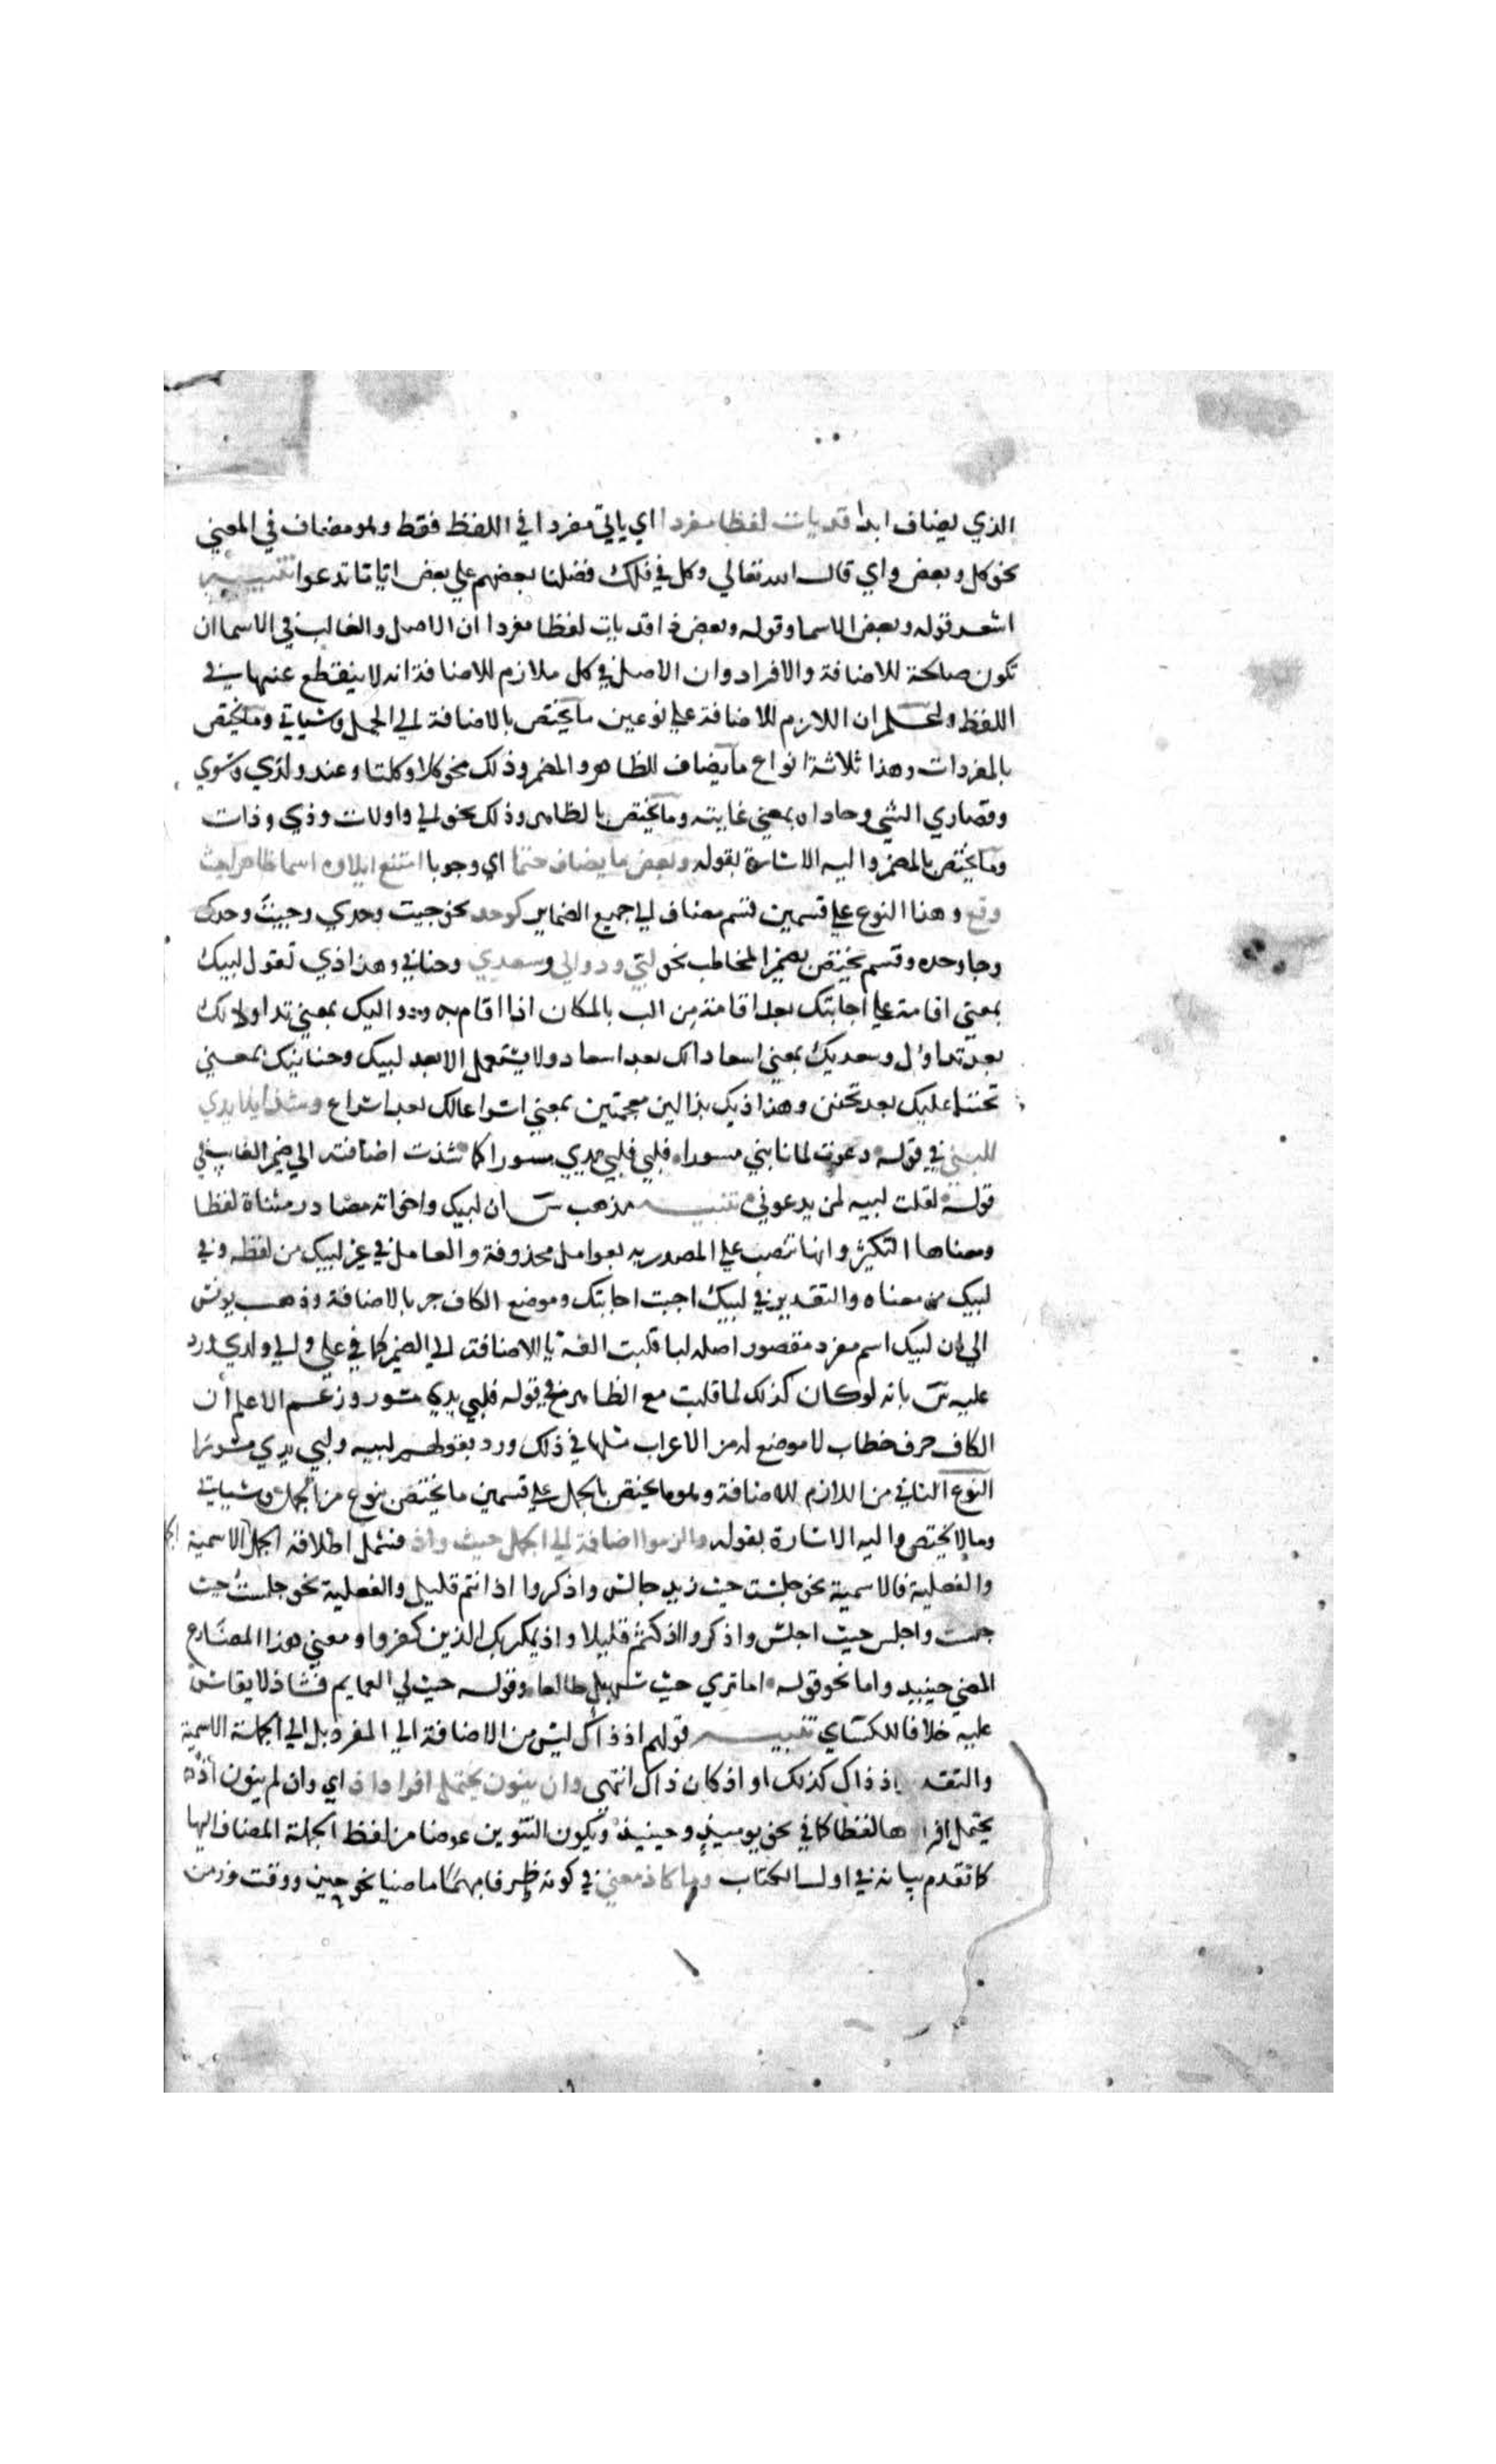 الذي يضاف ابدا قد يات لفظا مفردا اي ياتي مفردا في اللفظ فقط وهو مضاف في المعني
نحو كل وبعض واي قال الله تعالي وكل في فلك فضلنا بعضهم علي بعض ايا ما تدعوا تنبيه
اشعر قوله وبعض الاسما وقوله وبعض ذا قد يات لفظا مفردا ان الاصل والغالب في الاسما ان
تكون صالحة للاضافة والافراد وان الاصل في كل ملازم للاضافة انه لا ينقطع عنها في
اللفظ واعلم ان اللازم للاضافة علي نوعين ما يختص بالاضافة الي الجمل وسياتي وما يختص
بالمفردات وهذا ثلاثة انواع ما يضاف للظاهر والمضمر وذلك نحو كلا وكلتا وعند ولدي وسوي
وقصاري الشي وحاداه بمعني غايته وما يختص بالظاهر وذلك نحو اولي واولات وذي وذات
وما يختص بالمضمر واليه الاشارة بقوله وبعض ما يضاف حتما اي وجوبا امتنع ايلاوه اسما ظاهرا حيث
وقع وهذا النوع علي قسمين قسم مضاف الي جميع الضماير كوحد نحو جيت وحدي وجيت وحدك
وجا وحده وقسم يختص بضمير المخاطب نحو لبي ودوالي وسعدي وحناني وهذاذي تقول لبيك
بمعني اقامة علي اجابتك بعد اقامة من الب بالمكان اذا اقام به ودواليك بمعني تداولا لك
بعد تداول وسعديك بمعني اسعادا لك بعد اسعاد ولا يستعمل الا بعد لبيك وحنانيك بمعني
تحننا عليك بعد تحنن وهذاذيك بذالين معجمتين بمعني اسراعا لك بعد اسراع وشذ ايلا يدي
للبي في قوله دعوت لما نابني مسورا فلبي فلبي يدي مسور كما شذت اضافته الي ضمير الغايب في
قوله لقلت لبيه لمن يدعوني تنبيه مذهب س ان لبيك واخواته مصادر مثناة لفظا
ومعناها التكثير وانها تنصب علي المصدريه بعوامل محذوفة والعامل في غير لبيك من لفظه وفي
لبيك من معناه والتقدير في لبيك اجبت اجابتك وموضع الكاف جر بالاضافة وذهب يونس
الي ان لبيك اسم مفرد مقصور اصله لبا قلبت الفه يا للاضافة الي الضمير كما في علي والي ولدي ورد
عليه س بانه لو كان كذلك لما قلبت مع الظاهر في قوله فلبي يدي مسور وزعم الاعلم ان
الكاف حرف خطاب لا موضع له من الاعراب مثلها في ذلك ورد بقولهم لبيه ولبي يدي مسور
النوع الثاني من اللازم للاضافة وهو ما يختص بالجمل علي قسمين ما يختص بنوع من الجمل وسياتي
وما لا يختص واليه الاشارة بقوله والزموا اضافة الي الجمل حيث واذ فشمل اطلاقه الجمل الاسمية
والفعلية فالاسمية نحو جلست حيث زيد جالس واذكروا اذ انتم قليل والفعلية نحو جلست حيث
جلست واجلس حيث اجلس واذكروا اذ كنتم قليلا واذ يمكر بك الذين كفروا ومعني هذا المضارع
المضي حينيذ واما نحو قوله اما تري حيث سهيل طالعا وقوله حيث لي العمايم فشاذ لا يقاس
عليه خلافا للكساي تنبيه قولهم اذ ذاك ليس من الاضافة الي المفرد بل الي الجملة الاسمية
والتقد اذ ذاك كذلك او اذ كان ذاك انتهي وان ينون يحتمل افراد اذ اي وان لم ينون اذ
يحتمل افرا ها لفظا كما في نحو يوميذ وحينيذ ويكون التنوين عوضا من لفظ الجملة المضاف اليها
كما تقدم بيانه في اول الكتاب وما كاذ معني في كونه ظرفا مبهما ماضيا نحو حين ووقت وزمن